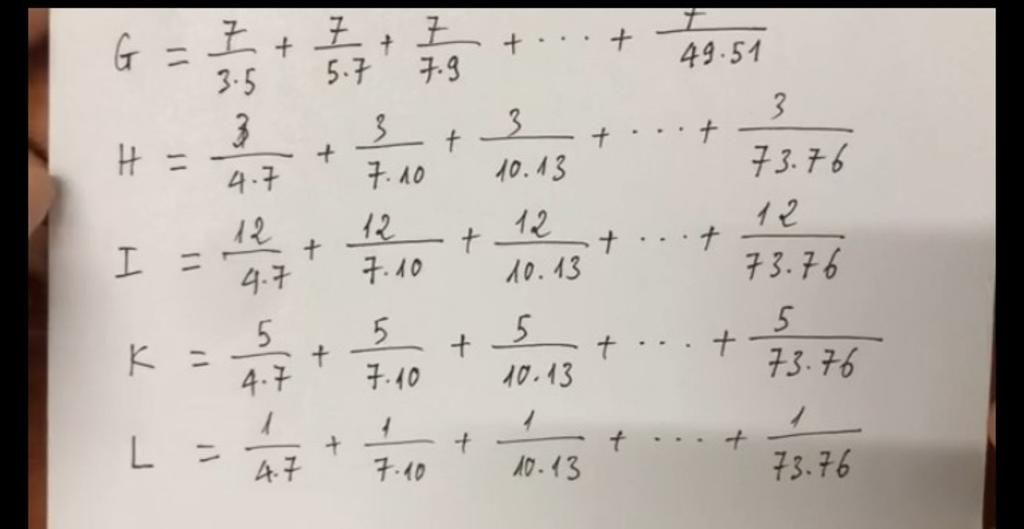 G = 7/3.5 + 7/5.7 + 7/7.9 + ... + 7/49.51
H = 3/4.7 + 3/7.10 + 3/10.13 + ... + 3/73.76
I = 12/4.7 + 12/7.10 + 12/10.13 + ... + 12/73.76
K = 5/4.7 + 5/7.10 + 5/10.13 + ... + 5/73.76
L = 1/4.7 + 1/7.10 + 1/10.13 + ... + 1/73.76